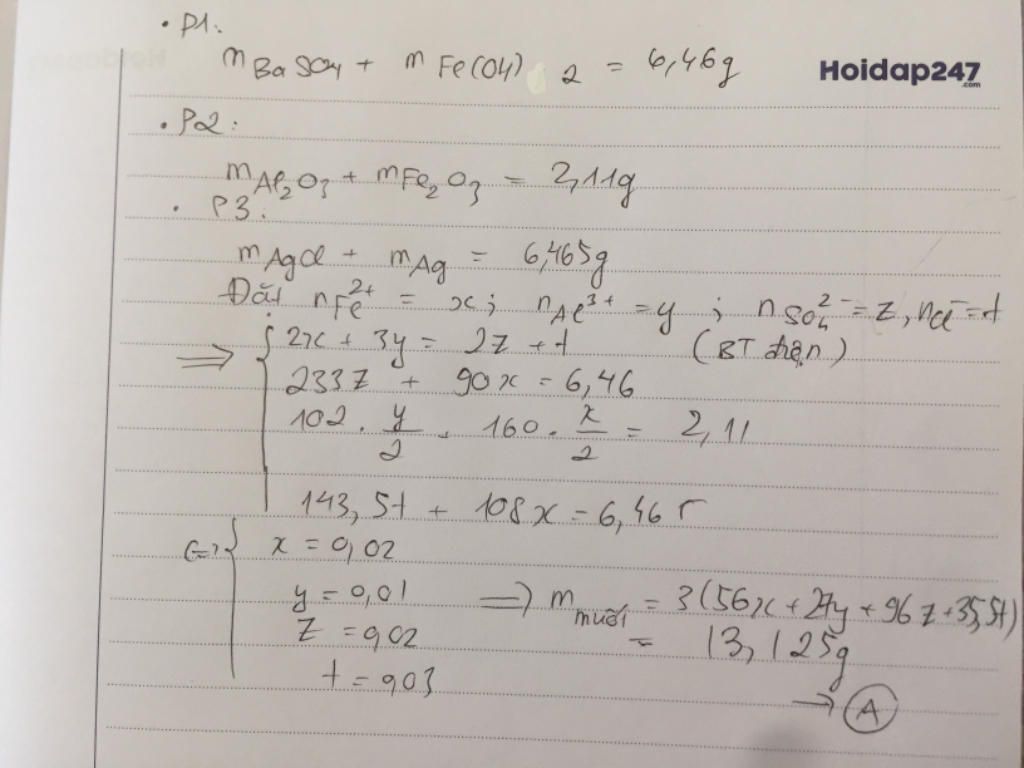 • P1:
mBaSO4 + mFe(OH)2 = 6,46g
Hoidap247
.com
• P2:
mAl2O3 + mFe2O3 = 2,11g
• P3:
mAgCl + mAg = 6,465g
Đặt nFe2+ = x; nAl3+ = y; nSO4 2- = z, nCl- = t
=> { 2x + 3y = 2z + t (BT điện)
233z + 90x = 6,46
102 . y/2 - 160 . x/2 = 2,11
143,5t + 108x = 6,465
<=> { x = 0,02
y = 0,01 => mmuối = 3(56x + 27y + 96z + 35,5t)
z = 0,02 = 13,125g
t = 0,03
→ A